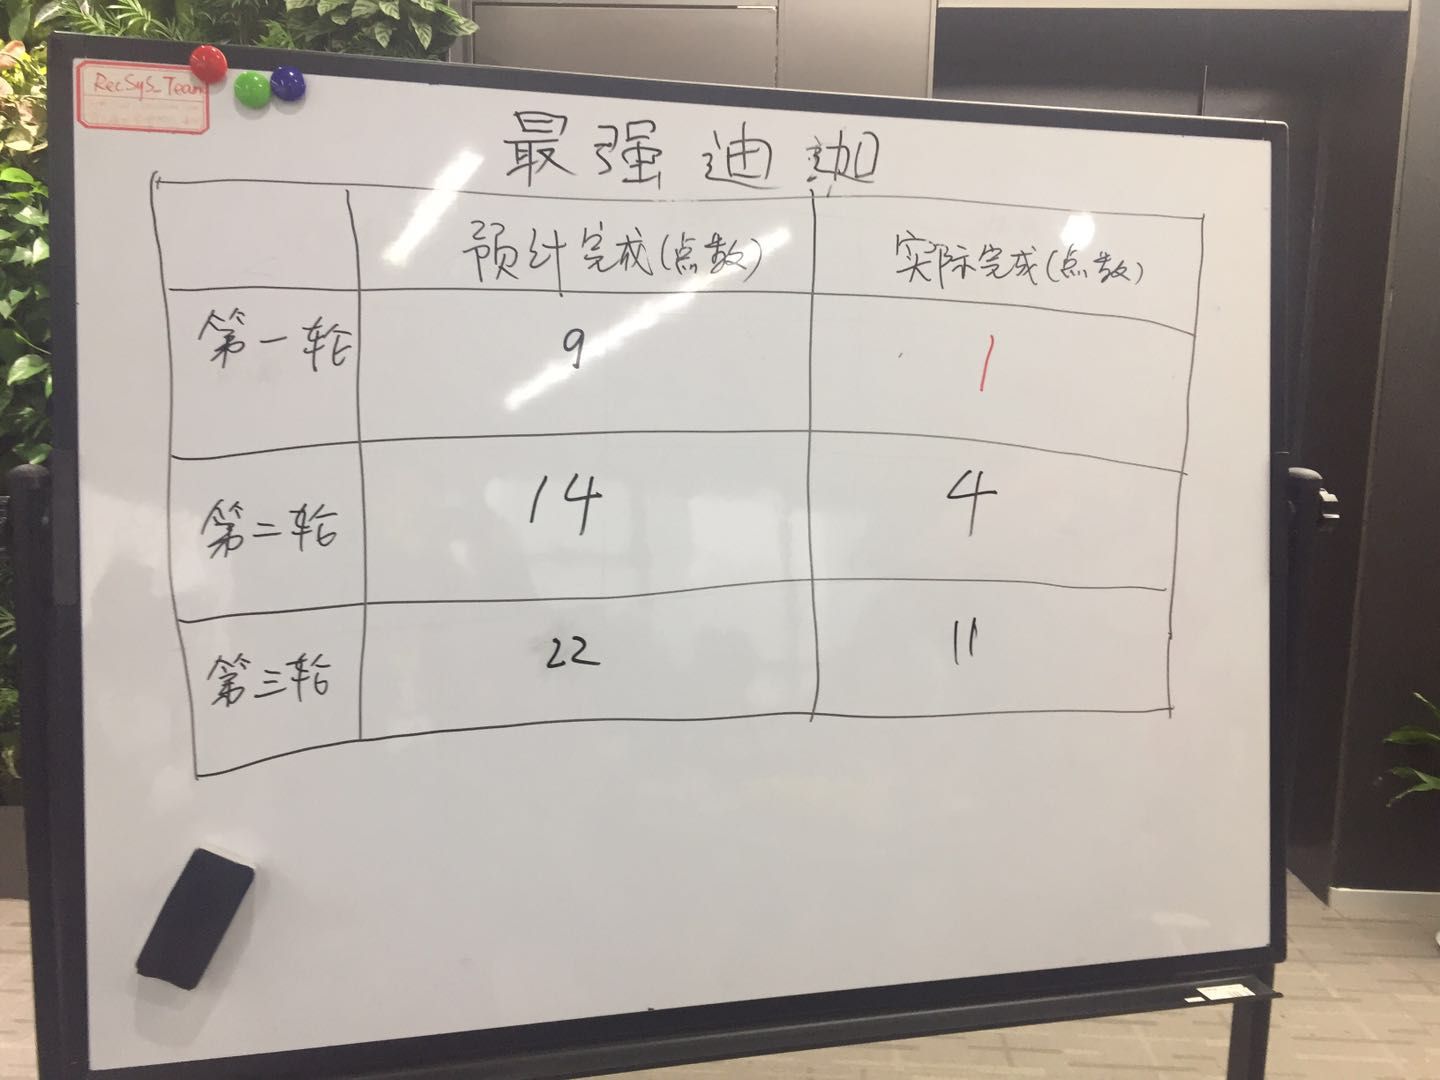 RecSyS_Team
最强迪迦
预计完成(点数) 实际完成(点数)
第一轮 9 1
第二轮 14 4
第三轮 22 11